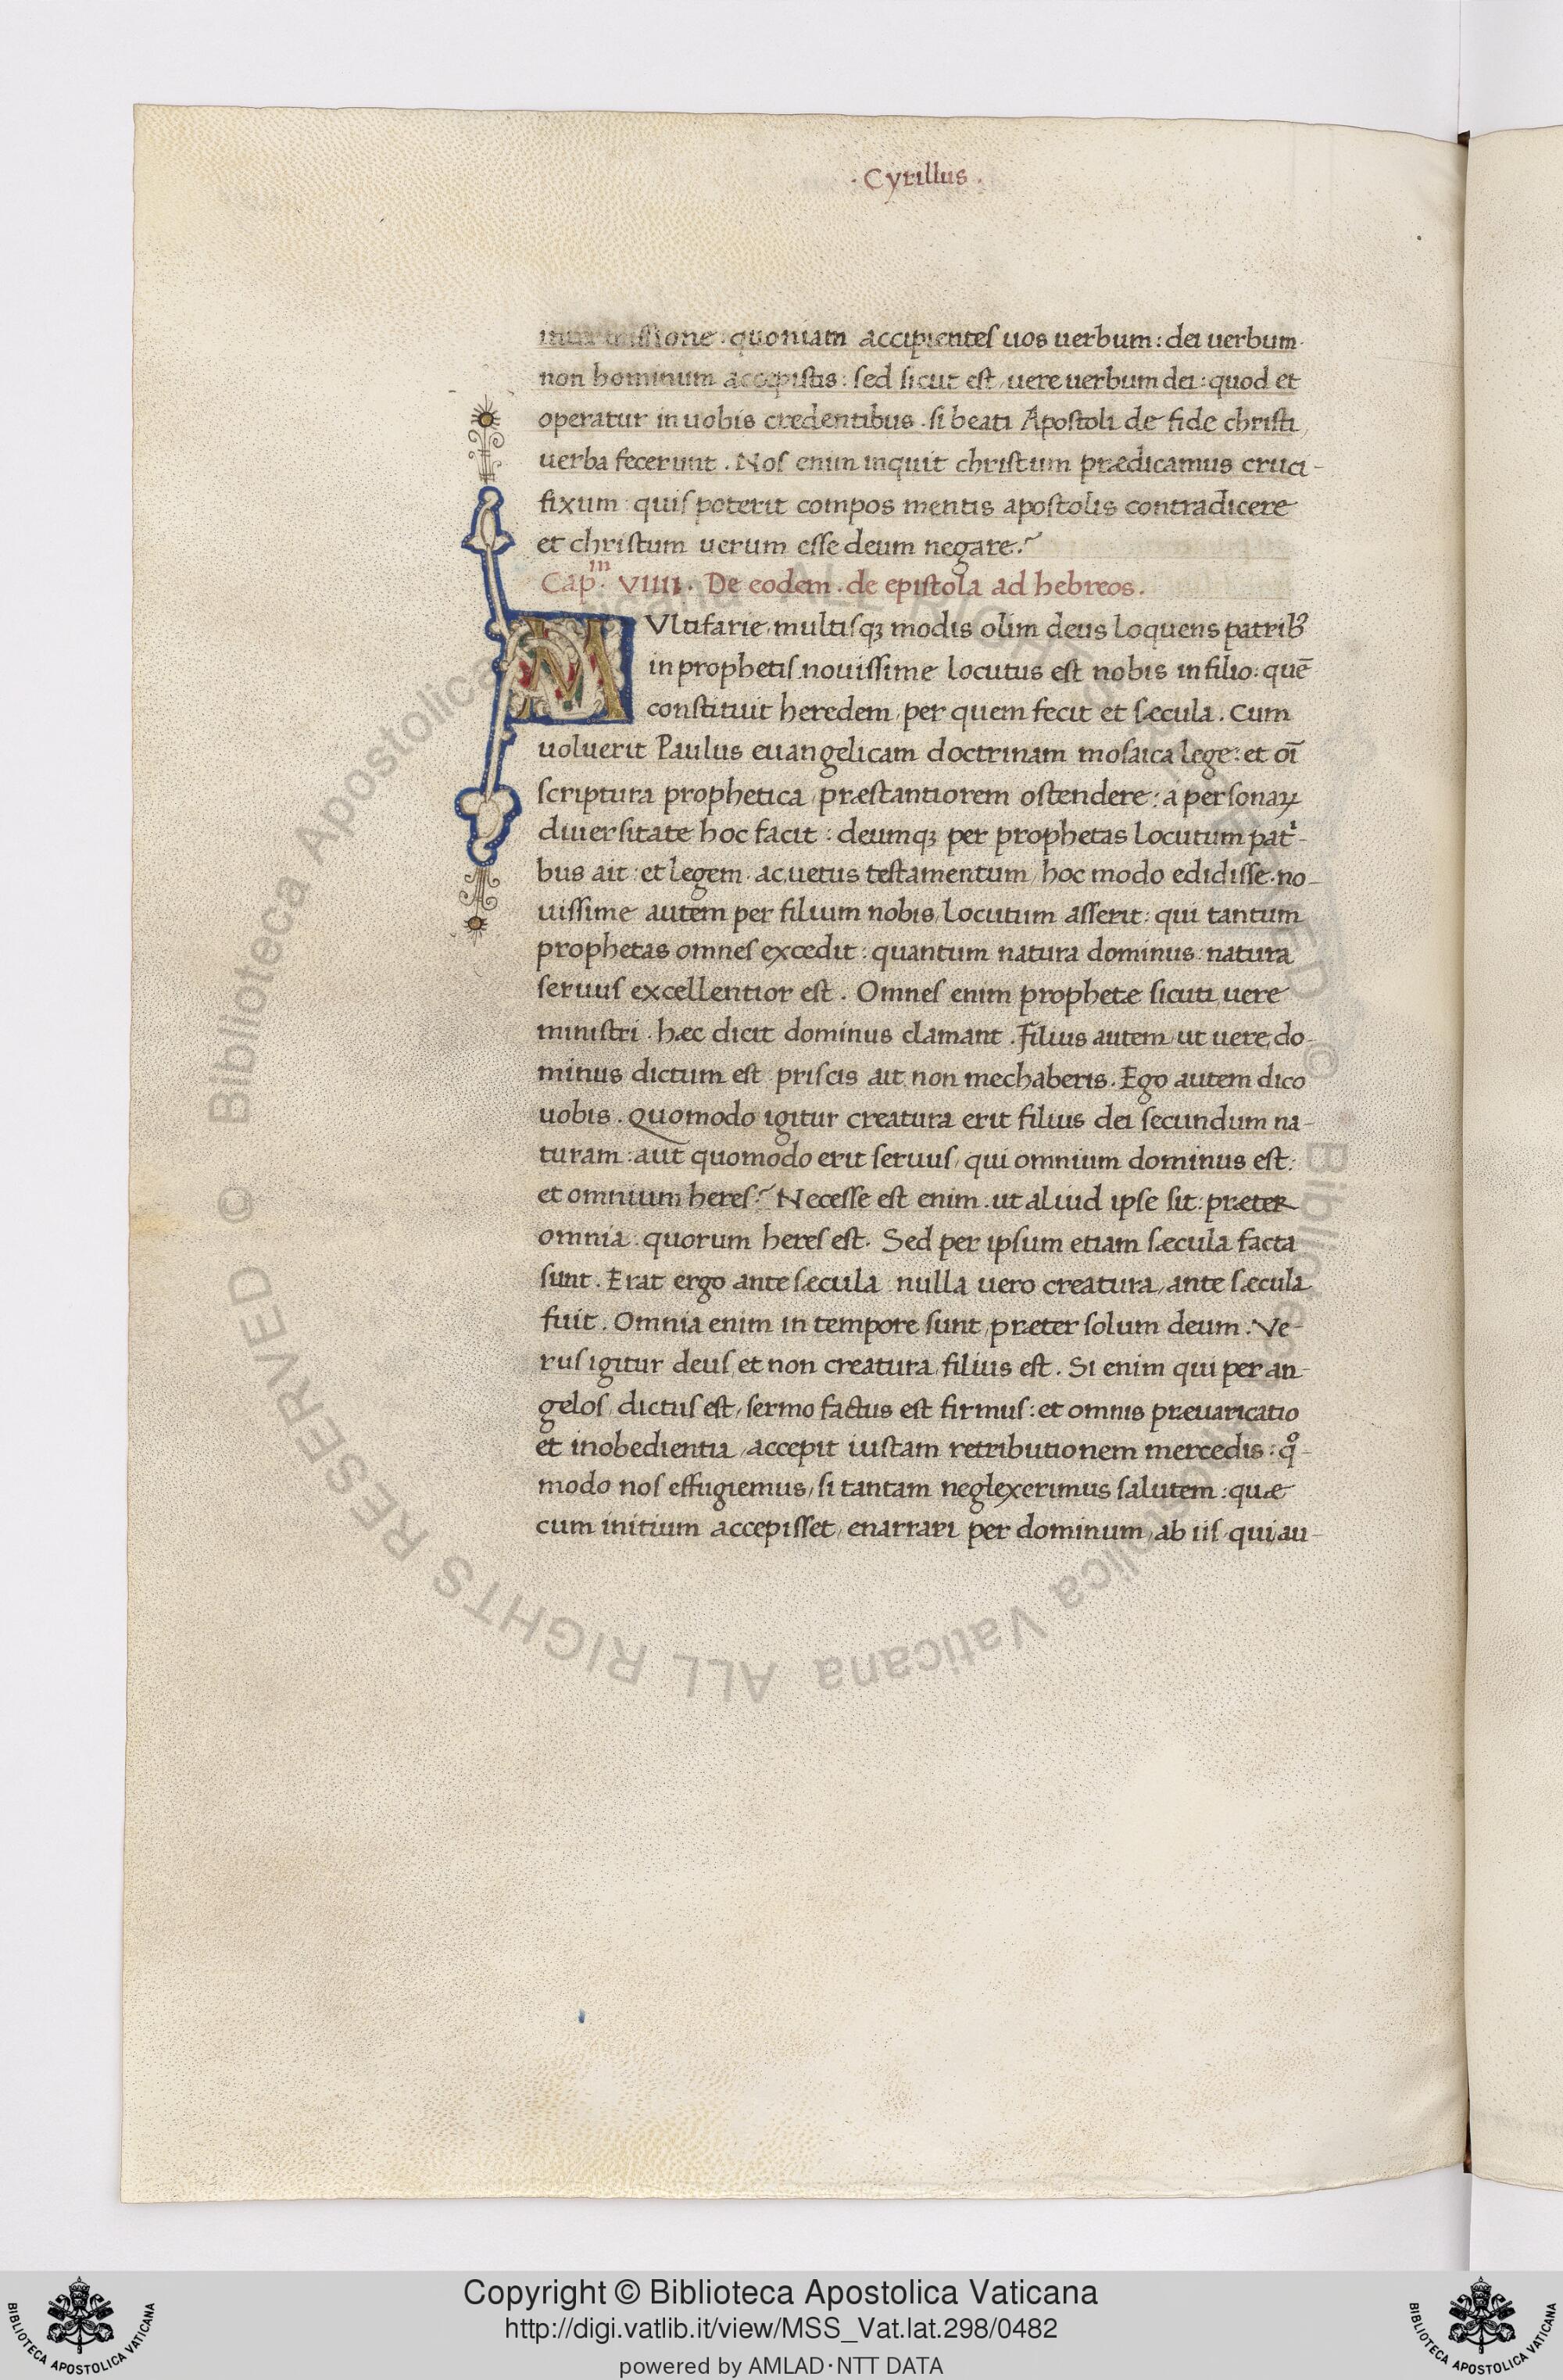 · Cyrillus ·
intermissione : quoniam accipientes uos uerbum : dei uerbum
non hominum accepistis : sed sicut est uere uerbum dei : quod et
operatur in uobis credentibus . si beati Apostoli de fide christi
uerba fecerunt . Nos enim inquit christum prædicamus cruci-
fixum : quis poterit compos mentis apostolis contradicere
et christum uerum esse deum negare?
Cap.m VIIII . De eodem . de epistola ad hebreos .
MVltifarie, multisqꝫ modis olim deus loquens patribꝰ
in prophetis, nouissime locutus est nobis in filio : quē
constituit heredem, per quem fecit et sæcula . Cum
uoluerit Paulus euangelicam doctrinam mosaica lege : et oī
scriptura prophetica, præstantiorem ostendere : a personaꝝ
diuersitate hoc facit : deumqꝫ per prophetas locutum patⁱ-
bus ait : et legem . ac uetus testamentum, hoc modo edidisse . no-
uissime autem per filium nobis, locutum asserit : qui tantum
prophetas omnes excedit : quantum natura dominus : natura
seruus excellentior est . Omnes enim prophetæ sicuti, uere
ministri . hæc dicit dominus clamant . Filius autem, ut uere, do-
minus dictum est priscis ait, non mechaberis . Ego autem dico
uobis . Quomodo igitur creatura erit filius dei secundum na-
turam : aut quomodo erit seruus, qui omnium dominus est :
et omnium heres? Necesse est enim . ut aliud ipse sit : præter
omnia : quorum heres est . Sed per ipsum etiam sæcula facta
sunt . Erat ergo ante sæcula nulla uero creatura, ante sæcula
fuit . Omnia enim in tempore sunt, præter solum deum . Ve-
rus igitur deus, et non creatura, filius est . Si enim qui per an-
gelos, dictus est, sermo factus est firmus : et omnis præuaricatio
et inobedientia, accepit iustam retributionem mercedis : qͦ-
modo nos effugiemus, si tantam neglexerimus salutem : quæ
cum initium accepisset, enarrari per dominum, ab iis, qui au-
© Biblioteca Apostolica Vaticana ALL RIGHTS RESERVED © Biblioteca Apostolica Vaticana ALL RIGHTS RESERVED
Copyright © Biblioteca Apostolica Vaticana
http://digi.vatlib.it/view/MSS_Vat.lat.298/0482
powered by AMLAD·NTT DATA
BIBLIOTECA APOSTOLICA VATICANA
BIBLIOTECA APOSTOLICA VATICANA